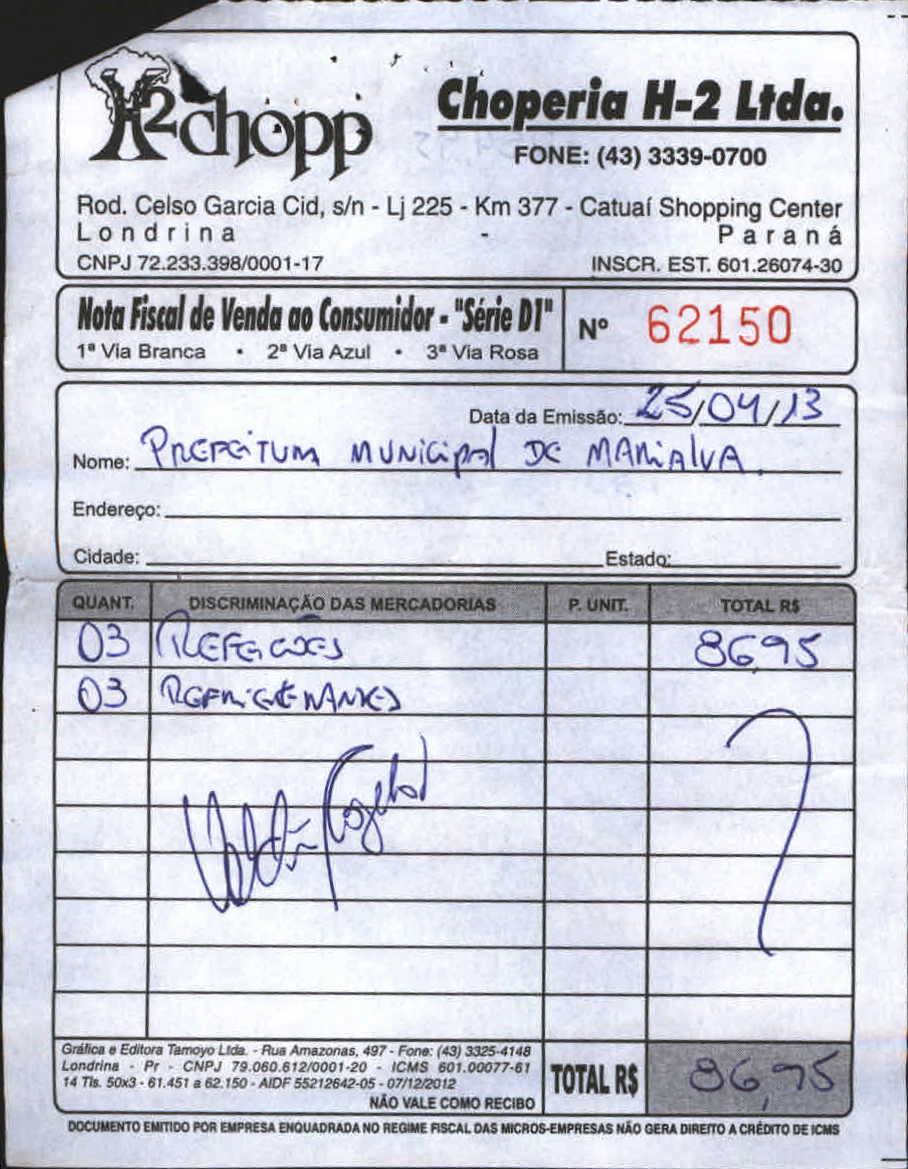 H2chopp
Choperia H-2 Ltda.
FONE: (43) 3339-0700
Rod. Celso Garcia Cid, s/n - Lj 225 - Km 377 - Catuaí Shopping Center
Londrina - Paraná
CNPJ 72.233.398/0001-17 INSCR. EST. 601.26074-30
Nota Fiscal de Venda ao Consumidor - "Série D1"
1ª Via Branca • 2ª Via Azul • 3ª Via Rosa
Nº 62150
Data da Emissão: 25/04/13
Nome: PREFEITURA MUNICIPAL DE MARIALVA.
Endereço:
Cidade: Estado:
QUANT. DISCRIMINAÇÃO DAS MERCADORIAS P. UNIT. TOTAL R$
03 REFEIÇÕES 86,95
03 REFRIGERANTES
Gráfica e Editora Tamoyo Ltda. - Rua Amazonas, 497 - Fone: (43) 3325-4148
Londrina - Pr - CNPJ 79.060.612/0001-20 - ICMS 601.00077-61
14 Tls. 50x3 - 61.451 a 62.150 - AIDF 55212642-05 - 07/12/2012
NÃO VALE COMO RECIBO
TOTAL R$ 86,95
DOCUMENTO EMITIDO POR EMPRESA ENQUADRADA NO REGIME FISCAL DAS MICROS-EMPRESAS NÃO GERA DIREITO A CRÉDITO DE ICMS